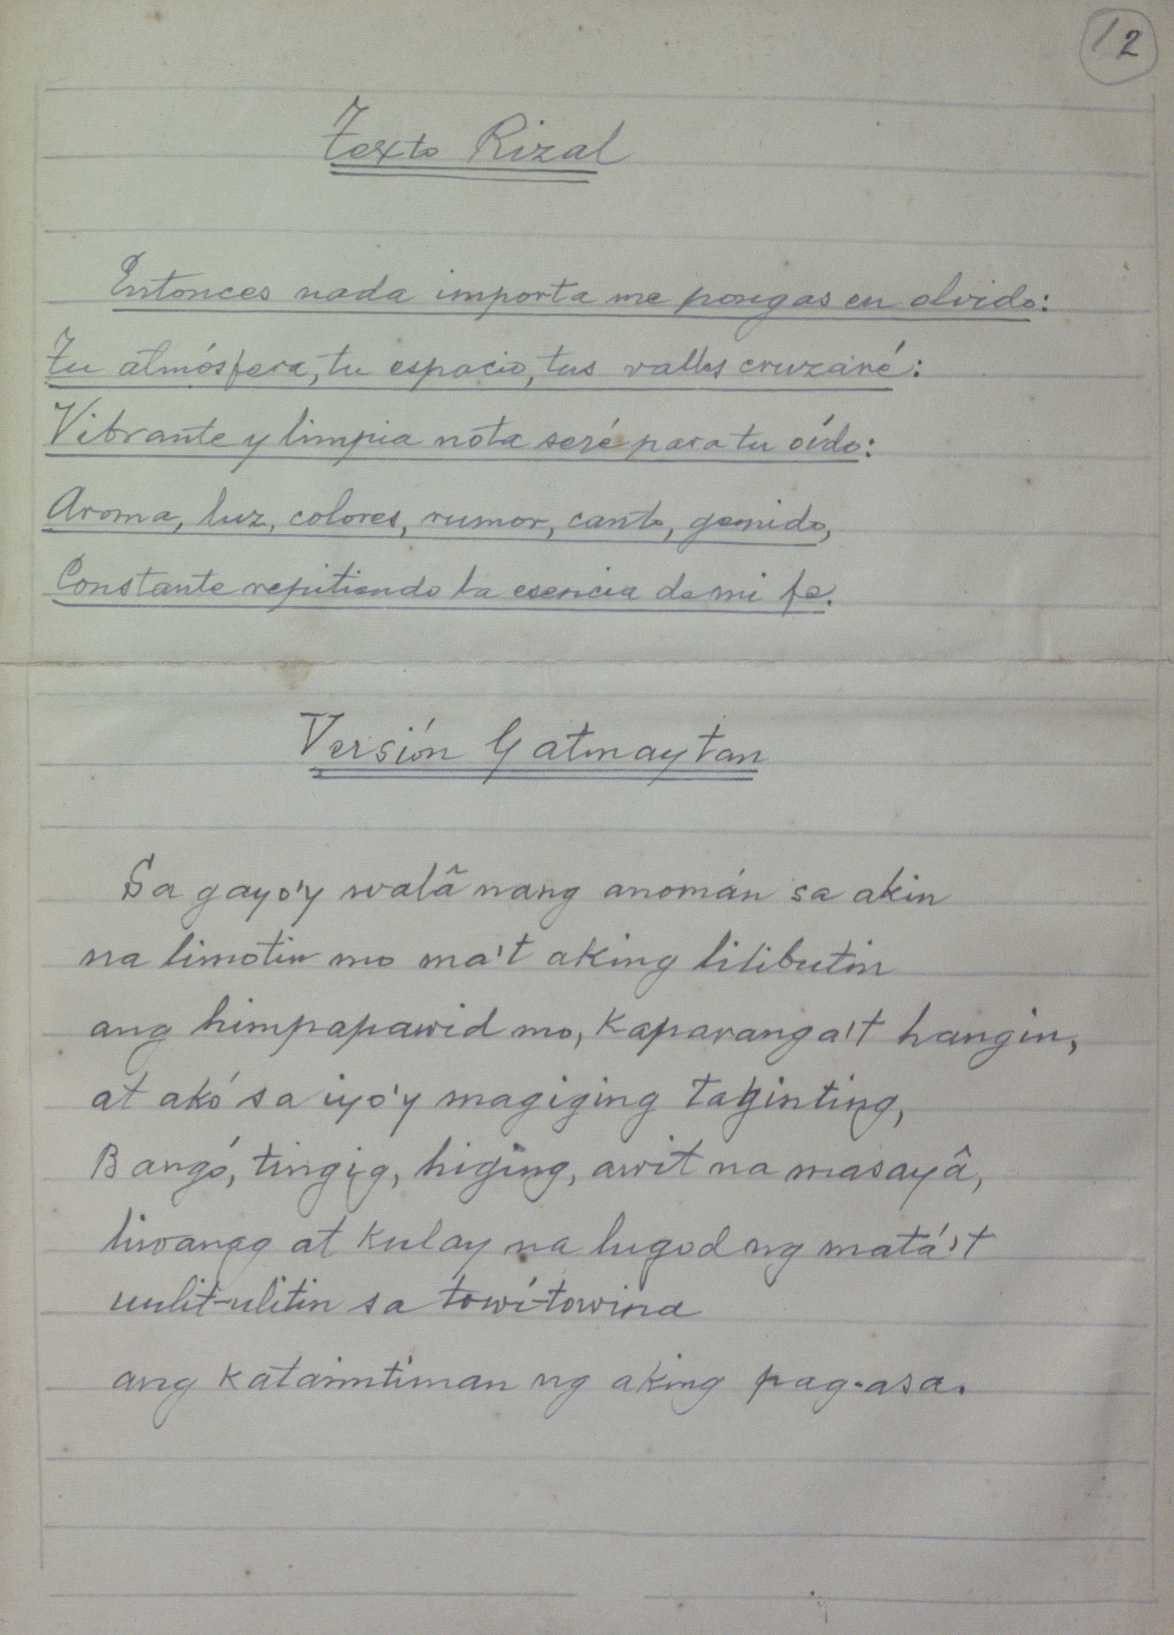 12
Texto Rizal
Entonces nada importa me pongas en olvido:
Tu atmósfera, tu espacio, tus valles cruzaré:
Vibrante y limpia nota seré para tu oído:
Aroma, luz, colores, rumor, canto, gemido,
Constante repitiendo la esencia de mi fe.
Versión Gatmaytan
Sa gayo'y walâ nang anomán sa akin
na limotin mo ma't aking lilibutin
ang himpapawid mo, kaparanga't hangin,
at akó sa iyo'y magiging taginting,
Bangó, tingig, higing, awit na masayâ,
liwanag at kulay na lugod ng matá't
uulit-ulitin sa towí-towina
ang kataimtiman ng aking pag-asa.